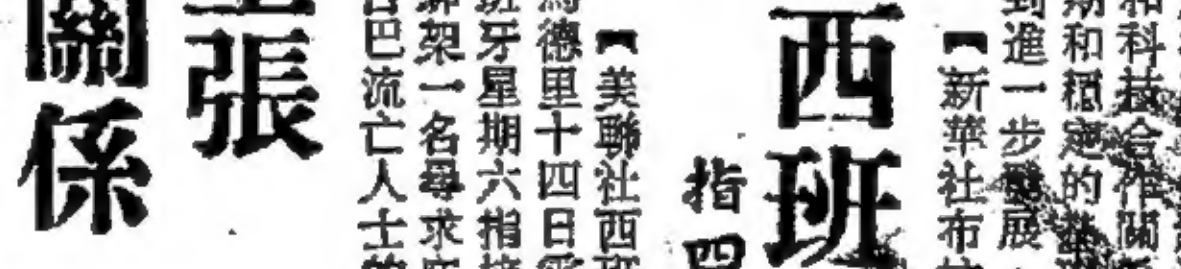 和科技合作關
期和穩定的基
到進一步發展
【新華社布
西班
指四
【美聯社西班
馬德里十四日電
班牙星期六指
綁架一名尋求庇
古巴流亡人士的
張
關係